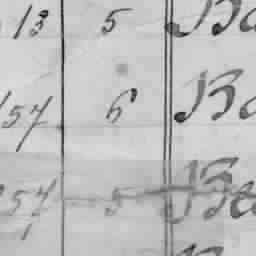 13 5 Ba
157 6 Ba
57 5 Be